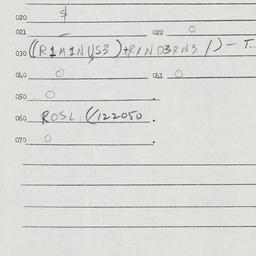 020 $
021 022 0
030 ((R1M1NUS3)+R1ND3RN3/)-T..
040 0 041 0
050 0 .
060 ROSL (/122050.
070 0 .